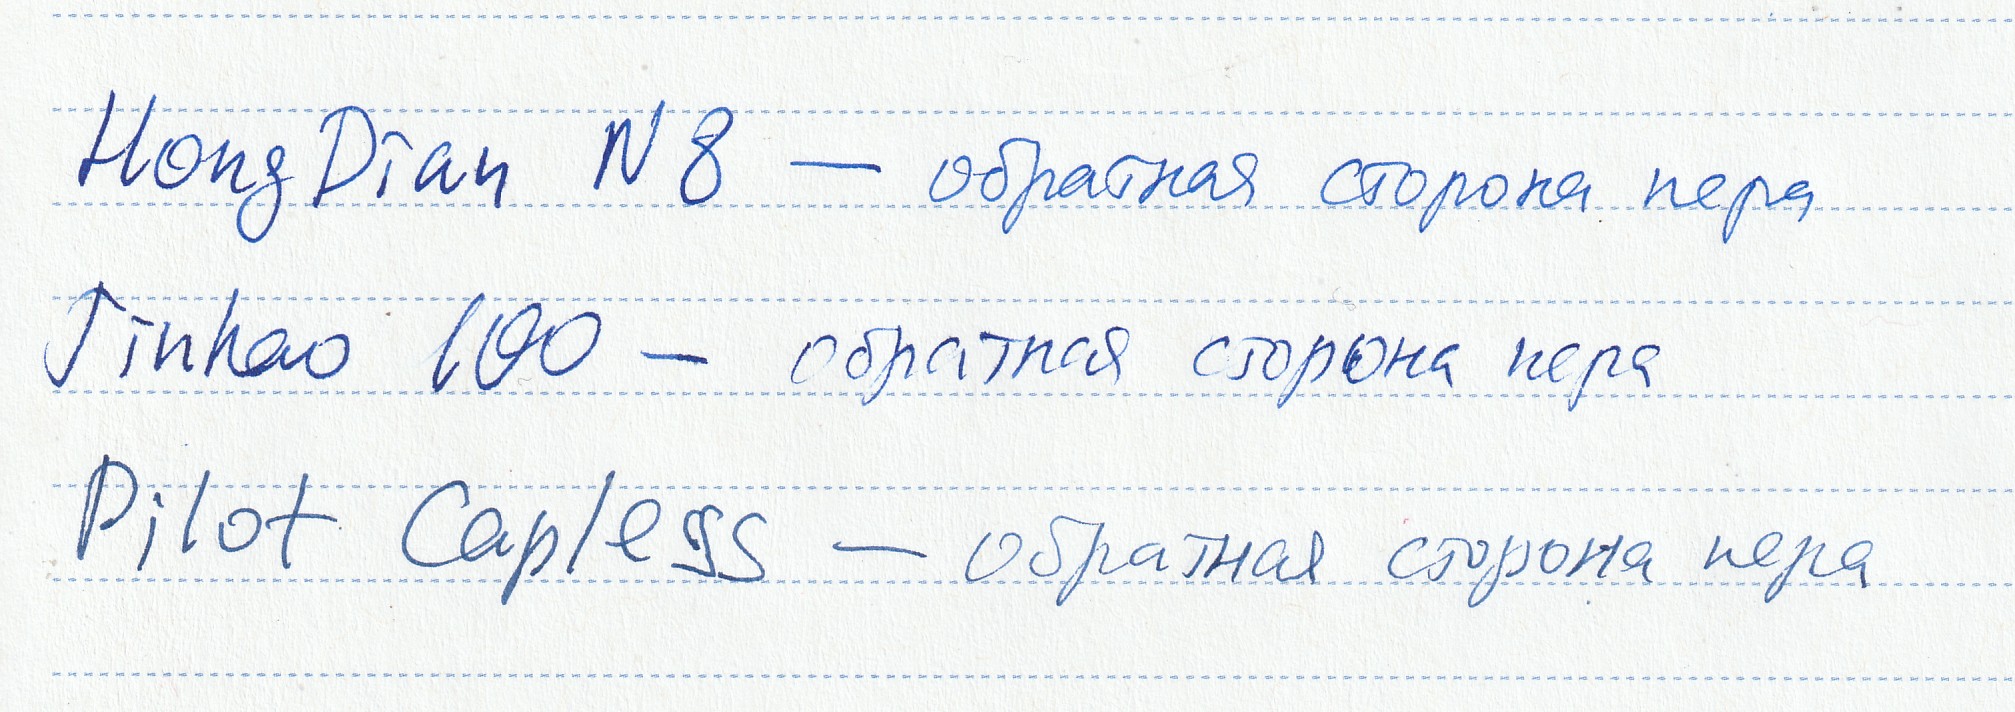 HongDian N8 — обратная сторона пера
Jinhao 100 — обратная сторона пера
Pilot Capless — обратная сторона пера